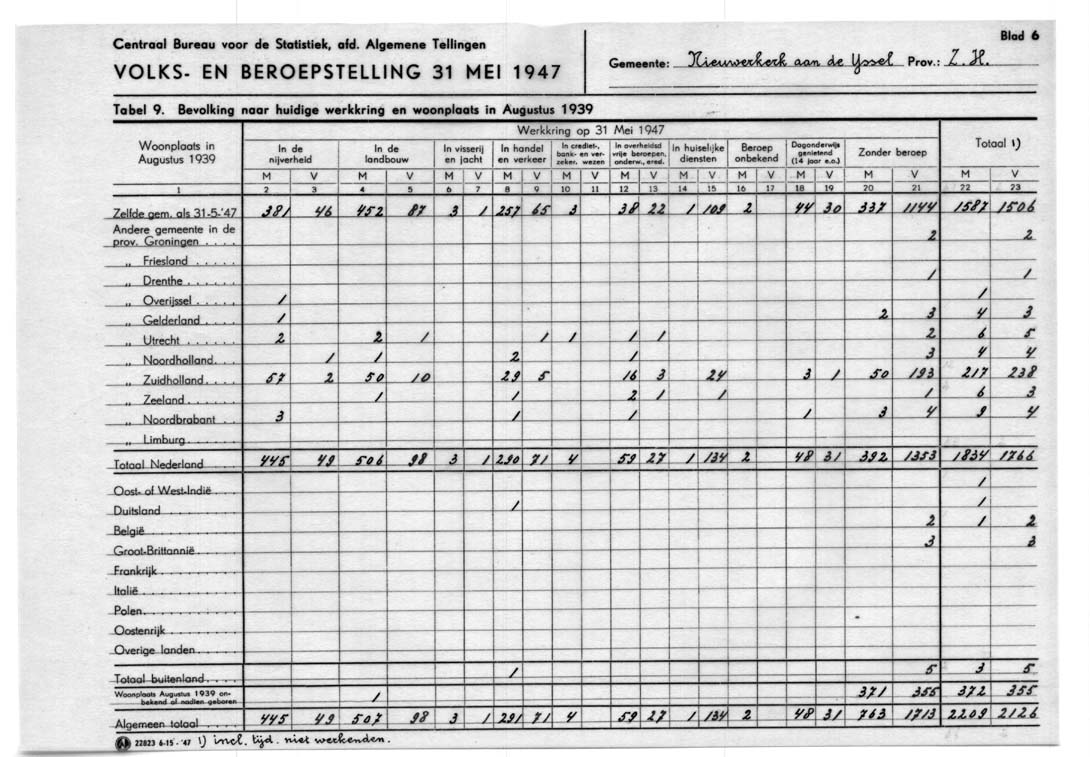 Centraal Bureau voor de Statistiek, afd. Algemene Tellingen
VOLKS- EN BEROEPSTELLING 31 MEI 1947
Blad 6
Gemeente: Nieuwerkerk aan de Yssel Prov.: Z.H.
Tabel 9. Bevolking naar huidige werkkring en woonplaats in Augustus 1939
Woonplaats in Augustus 1939
Werkkring op 31 Mei 1947
In de nijverheid
In de landbouw
In visserij en jacht
In handel en verkeer
In crediet-, bank- en ver- zeker. wezen
In overheidsd vrije beroepen, onderw., ered.
In huiselijke diensten
Beroep onbekend
Dagonderwijs genietend (14 jaar e.o.)
Zonder beroep
Totaal 1)
M V M V M V M V M V M V M V M V M V M V M V
1 2 3 4 5 6 7 8 9 10 11 12 13 14 15 16 17 18 19 20 21 22 23
Zelfde gem. als 31-5-'47 381 46 452 87 3 1 257 65 3 38 22 1 109 2 44 30 337 1144 1587 1506
Andere gemeente in de
prov. Groningen . . . . 2 2
„ Friesland . . . . .
„ Drenthe . . . . . . 1 1
„ Overijssel . . . . . 1 1
„ Gelderland . . . . 1 2 3 4 3
„ Utrecht . . . . . . 2 2 1 1 1 1 1 2 6 5
„ Noordholland. . . 1 1 2 1 3 4 4
„ Zuidholland. . . . 57 2 50 10 29 5 16 3 24 3 1 50 193 217 238
„ Zeeland . . . . . 1 1 2 1 1 1 6 3
„ Noordbrabant . . 3 1 1 1 3 4 9 4
„ Limburg. . . . . .
Totaal Nederland . . . . 445 49 506 98 3 1 290 71 4 59 27 1 134 2 48 31 392 1353 1834 1766
Oost- of West-Indië . . . 1
Duitsland . . . . . . . . 1 1
België . . . . . . . . . 2 1 2
Groot-Brittannië . . . . . 3 3
Frankrijk . . . . . . . .
Italië . . . . . . . . . .
Polen. . . . . . . . . .
Oostenrijk . . . . . . .
Overige landen. . . . . .
Totaal buitenland. . . . 1 5 3 5
Woonplaats Augustus 1939 on-
bekend of nadien geboren 1 371 355 372 355
Algemeen totaal . . . . 445 49 507 98 3 1 291 71 4 59 27 1 134 2 48 31 763 1713 2209 2126
22823 6-15 - '47 1) incl. tijd. niet werkenden.